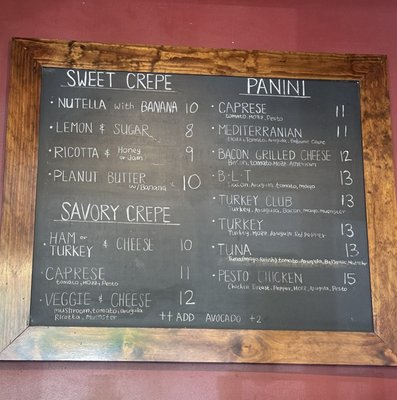 SWEET CREPE
NUTELLA with BANANA 10
LEMON & SUGAR 8
RICOTTA & Honey or Jam 9
PLANUT BUTTER w/Banana 10
SAVORY CREPE
HAM or TURKEY & CHEESE 10
CAPRESE 11
tomato, Mozz, Pesto
VEGGIE & CHEESE 12
mushroom, tomato, Arugula
Ricotta, Munster
++ ADD AVOCADO +2
PANINI
CAPRESE 11
tomato, Mozz, Pesto
MEDITERRANIAN 11
Tomato, Arugula, Balsamic
BACON GRILLED CHEESE 12
Bacon, tomato, Mozz, American
B·L·T 13
Bacon, Arugula, tomato, mayo
TURKEY CLUB 13
Turkey, Arugula, Bacon, mayo, munster
TURKEY 13
Turkey, Mozz, Arugula, Red Pepper
TUNA 13
Tuna, tomato, Arugula, Balsamic, Munster
PESTO CHICKEN 15
Chicken Breast, Pepper, Mozz, Arugula, Pesto